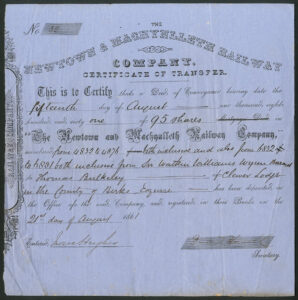 No
THE
NEWTOWN & MACHYNLLETH RAILWAY
COMPANY.
CERTIFICATE OF TRANSFER.
This is to Certify that a Deed of Conveyance bearing date the
fifteenth day of August one thousand eight
hundred and sixty one of 95 shares
"The Newtown and Machynlleth Railway Company,"
from 4832 to 4876 both inclusive and also from
to 4801 both inclusive from Sir Watkin Williams Wynn Baronet
to Thomas Bulkeley of Clewer Lodge
in the County of Berks Esquire has been deposited in
the Office of the said Company and registered in their Books on the
21st day of August 1861
Entered,
Secretary.